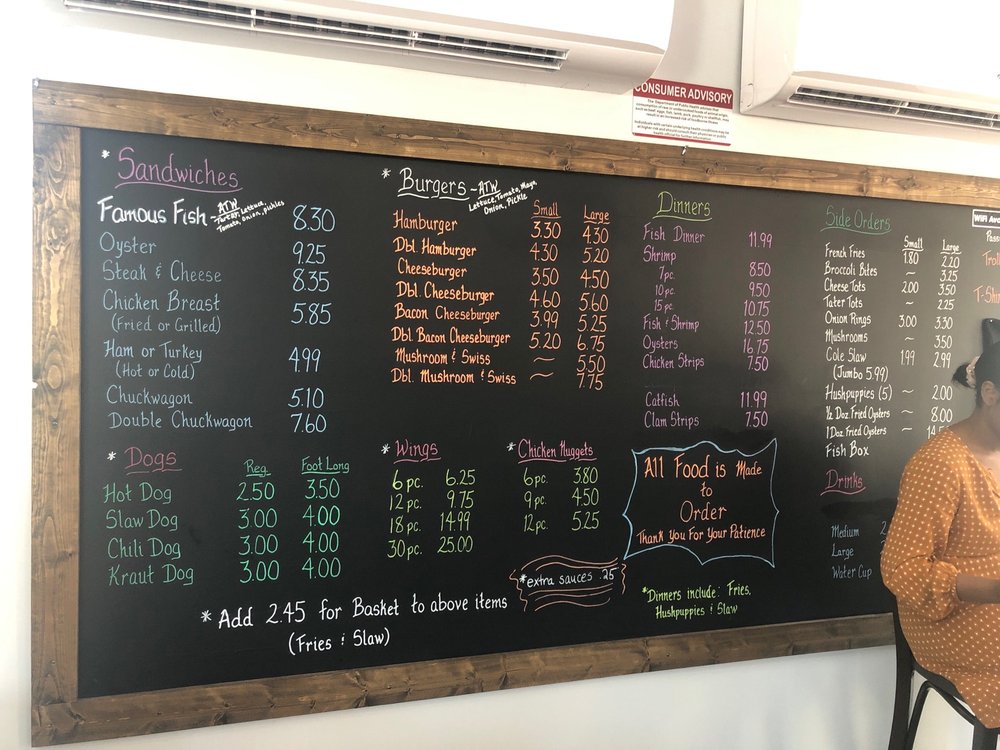 CONSUMER ADVISORY
* Sandwiches
Famous Fish - ATW
Lettuce,
Tomato, Onion, Pickles
8.30
Oyster 9.25
Steak & Cheese 8.35
Chicken Breast 5.85
(Fried or Grilled)
Ham or Turkey 4.99
(Hot or Cold)
Chuckwagon 5.10
Double Chuckwagon 7.60
* Dogs Reg. Foot Long
Hot Dog 2.50 3.50
Slaw Dog 3.00 4.00
Chili Dog 3.00 4.00
Kraut Dog 3.00 4.00
* Burgers - ATW
Lettuce, Tomato, Mayo
Onion, Pickle
Small Large
Hamburger 3.30 4.30
Dbl. Hamburger 4.30 5.20
Cheeseburger 3.50 4.50
Dbl. Cheeseburger 4.60 5.60
Bacon Cheeseburger 3.99 5.25
Dbl Bacon Cheeseburger 5.20 6.75
Mushroom & Swiss ~ 5.50
Dbl. Mushroom & Swiss ~ 7.75
* Wings
6 pc. 6.25
12 pc. 9.75
18 pc. 14.99
30 pc. 25.00
* Chicken Nuggets
6 pc. 3.80
9 pc. 4.50
12 pc. 5.25
* extra sauces .25
* Add 2.45 for Basket to above items
(Fries & Slaw)
Dinners
Fish Dinner 11.99
Shrimp
7 pc. 8.50
10 pc. 9.50
15 pc. 10.75
Fish & Shrimp 12.50
Oysters 16.75
Chicken Strips 7.50
Catfish 11.99
Clam Strips 7.50
All Food is Made
to
Order
Thank You For Your Patience
*Dinners include: Fries,
Hushpuppies & Slaw
Side Orders Small Large
French Fries 1.80 2.20
Broccoli Bites ~ 3.25
Cheese Tots 2.00 3.50
Tater Tots ~ 2.25
Onion Rings 3.00 3.30
Mushrooms ~ 3.50
Cole Slaw 1.99 2.99
(Jumbo 5.99)
Hushpuppies (5) ~ 2.00
½ Doz. Fried Oysters ~ 8.00
1 Doz. Fried Oysters ~
Fish Box
Drinks
Medium
Large
Water Cup
WiFi